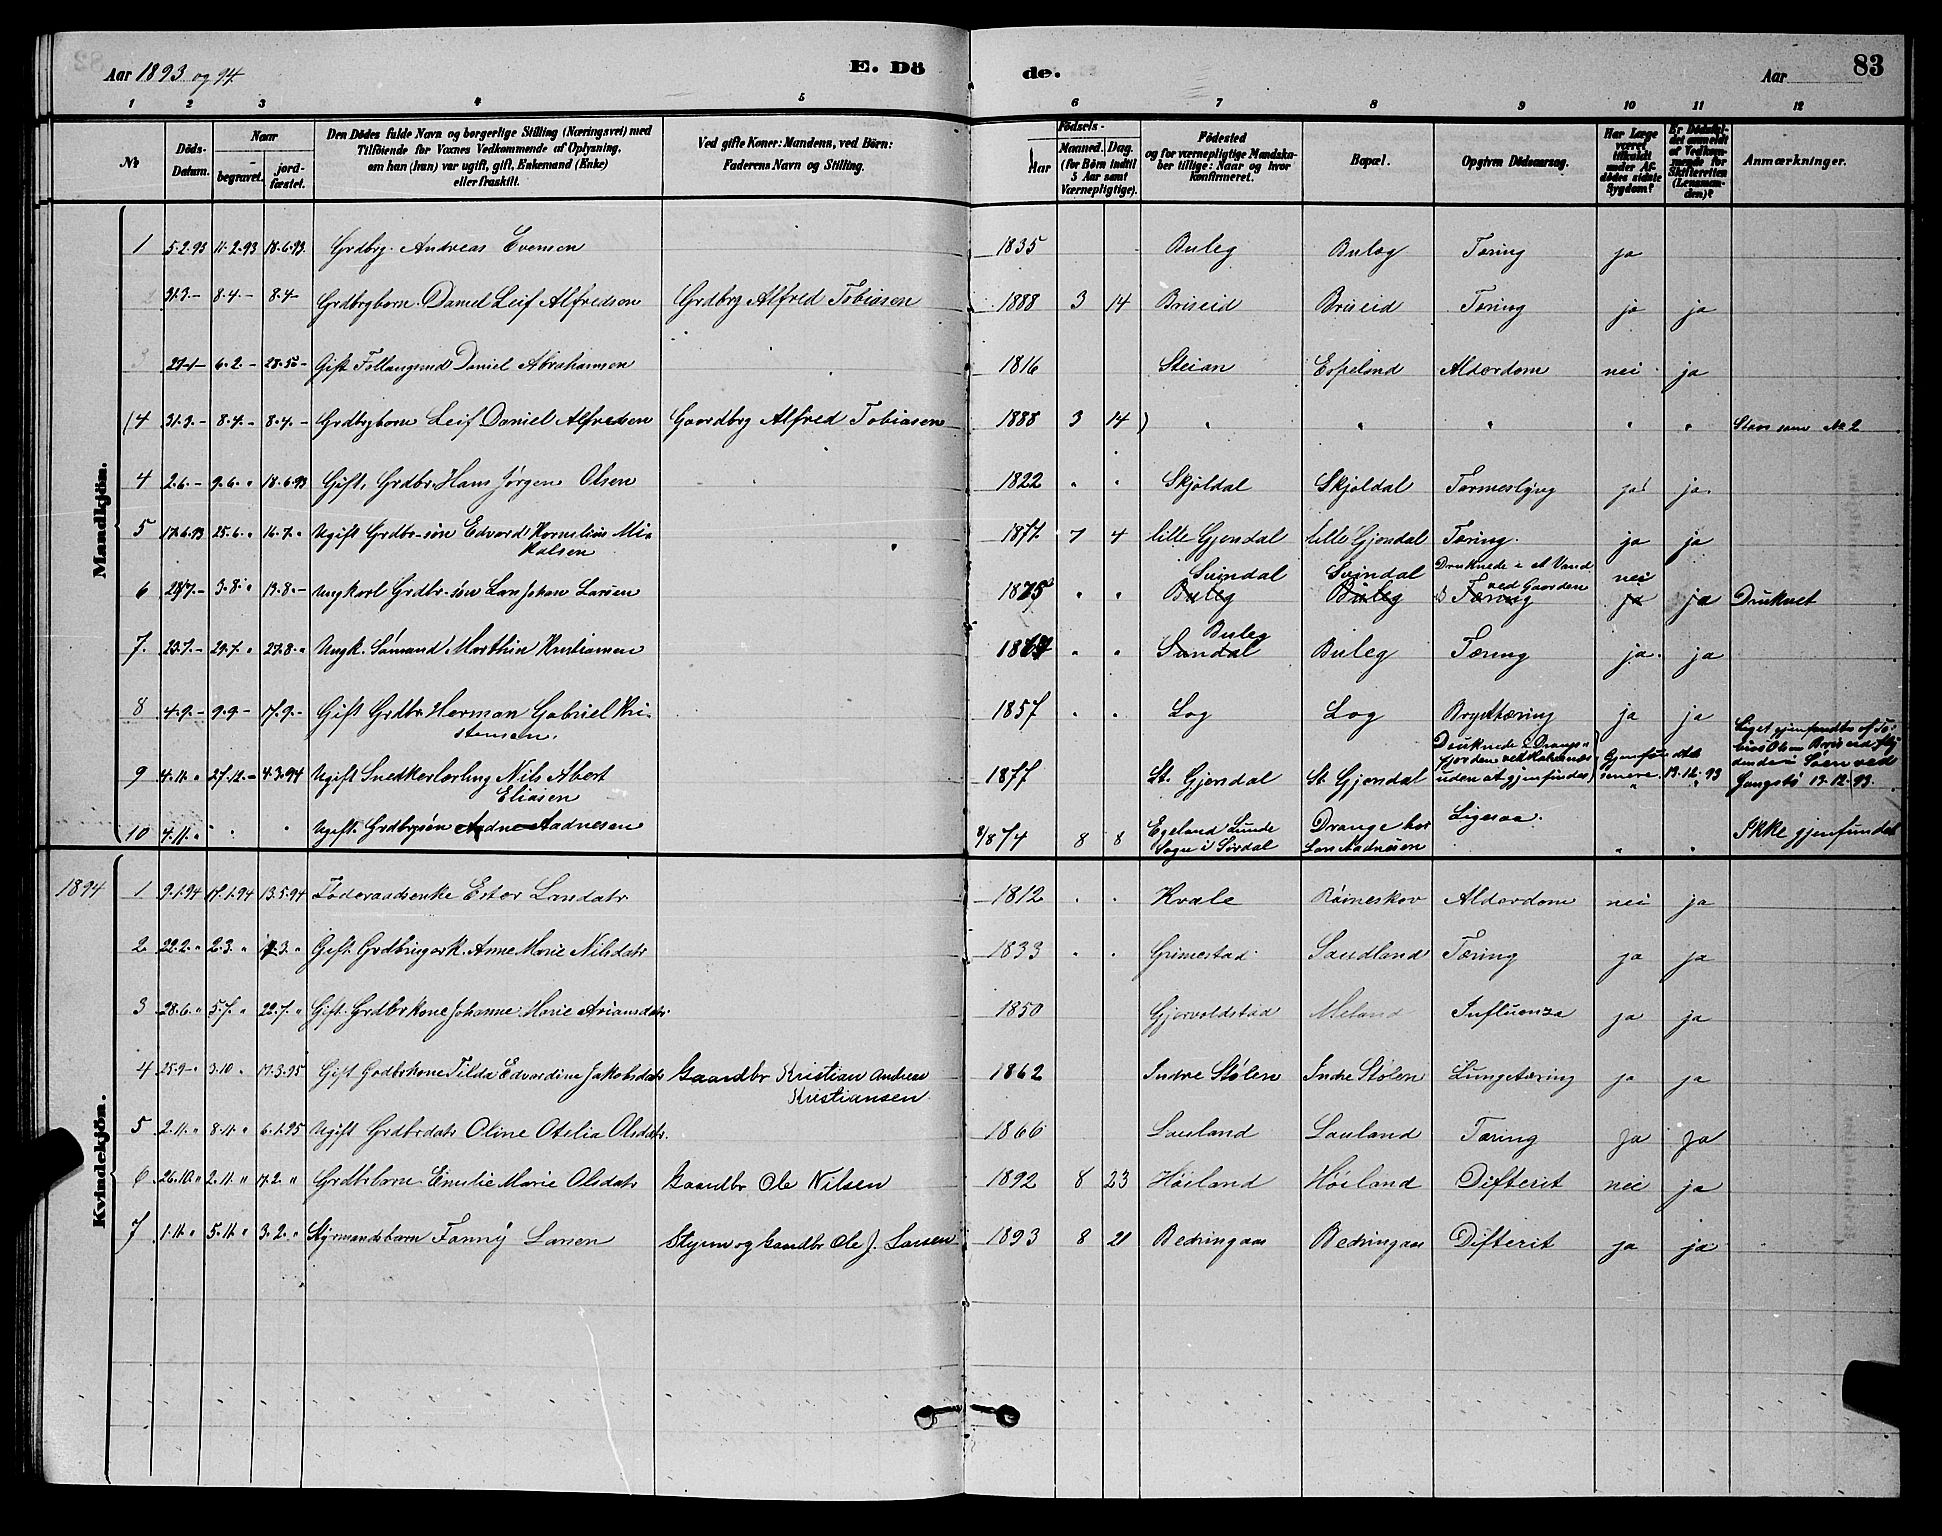 Aar 1893 og 94.
E. Dö
de.
Aar
83
1 2 3 4 5 6 7 8 9 10 11 12
No
Döds-Datum.
Naar
begravet.
jordfæstet.
Den Dödes fulde Navn og borgerlige Stilling (Næringsvei) med
Tilföiende for Voxnes Vedkommende af Oplysning,
om han (hun) var ugift, gift, Enkemand (Enke)
eller fraskilt.
Ved gifte Koner: Mandens, ved Börn:
Faderens Navn og Stilling.
Födsels-
Aar
Maaned. Dag.
(for Börn indtil
5 Aar samt
Værnepligtige).
Födested
og for værnepligtige Mandskaber tillige: Naar og hvor
konfirmeret.
Bopæl.
Opgiven Dödsaarsag.
Har Læge
været
tilkaldt
under Afdödes sidste
Sygdom?
Er Dödsfaldet anmeldt
af Vedkommende for
Skifteretten
(Lensmanden)?
Anmærkninger.
Mandkjön.
1 5.2.93 11.2.93 18.6.93. Grdbrg. Andreas Evensen 1835 Buleg Bulæg Tæring ja
31.3.– 8.4.– 8.4– Grdbrgbarn Daniel Leif Alfredsen Grdbrg Alfred Tobiasen 1888 3 14 Briseid Briseid Tæring ja ja
3 6.2.– Gift Daniel Abrahamsen 1816 Steian Espeland Alderdom nei ja
(4 31.3.– 8.4.– 8.4.– Grdbrgbarn Leif Daniel Alfredsen Gaardbrg Alfred Tobiasen 1888 3 14 ) " " " " " Slaas sam No 2
4 2.6.– 9.6. " 18.6.93 Gift, Grdbr. Hans Jørgen Olsen 1822 " " Skjöldal Skjöldal ja ja.
5 17.6.93 25.6. " 16.7. " Ugift Grdbr–søn Edvard Kornelius Mikalsen 1877 7 4 lille Gjendal lille Gjendal Tæring. ja ja
6 28/7.– 3.8. " 13.8.– Ungkarl Grdbr–søn Lars Johan Larsen 1875 " " Svindal Buleg Svindal Buleg Druknede i et Vand ved Gaarden Tæring nei ja ja Druknet
7. 23.7.– 29.7. " 27.8. " Ungk. Sömand Marthin Kristiansen " " Buleg Sundal Buleg Tæring ja. ja
8 4.9.– 9.9– 17.9.– Gift Grdbr. Herman Gabriel Kristensen. 1857 " " Log Log Brysttæring ja ja
9 4.11. " 27.12.– 4.3.94 Ugift Snedkerlærling Nils Abert Eliasen 1877 St. Gjendal St. Gjendal Druknede i Drangsfjorden ved uden at gjenfindes) Gjenfundet senere. 13.12.93 Liget gjenfundtes af Tobias Olsen Briseid flydende i Søen ved 13.12.93.
10 4.11. " " " Ugift. Grdbrgsøn Aadne Aadnesen 8/1874 8 8 Egeland Lunde Sogn i Sirdal Drange hos Lars Aadnesen Ligesaa. " " Ikke gjenfundet
Kvindekjön.
1894 1 9.1.94 17.1.94 13.5.94 Föderaadsenke Ester Larsdatr 1812 " " Kvale Röineskor Alderdom nei ja
2 22.2. " 2.3. " Gift Anne Marie Nilsdatr 1833 " " Grimestad Saudland Tæring ja ja
3 28.6. " 5.7. " 22.7. " Gift Grdbrkone Johanne Marie Ariansdatr 1850 Gjervoldstad Meland Influenza ja ja
4 25.9– " 3.10 " 17.3.95 Gift Gadbrkone Tilda Edvardine Jakobsdatr Gaardbr Kristian Andreas Kristiansen 1862 Indre Stølen Indre Stølen Lungetæring ja ja
5 2.11. " 8.11. " 6.1.95 Ugift Grdbrdatr Oline Otelia Olsdatr. 1866 Lauland Lauland Tæring ja ja
6 26.10. " 2.11. " 17.2. " Grdbrbarn Emilie Marie Olsdatr Gaardbr Ole Nilsen 1892 8 23 Höiland Höiland Difterit nei ja
7 1.11. " 5.11. " 3.2. " Styrmandsbarn Fanny Larsen Styrm og Gaardbr Ole J. Larsen 1893 8 21 Bedringaas Bedringaas Difterit ja ja